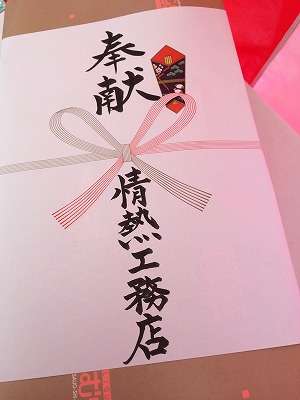 奉献
情熱工務店